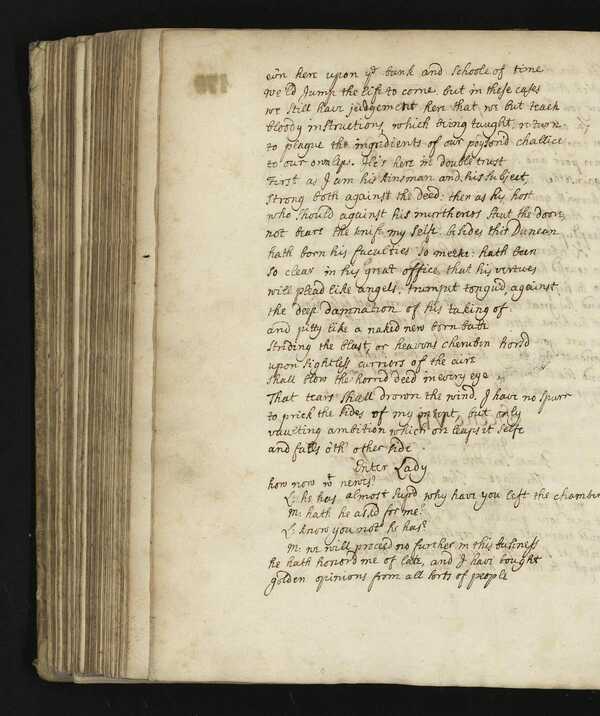 ev'n here upon ys bank and schoole of time
we'ld Jump the life to come. but in these cases
we still have judgement here that we but teach
bloody instructions, which being taught, return
to plague the ingredients of our poysond challice
to our own lips. He's here in double trust
First as I am his kinsman and his subject,
strong both against the deed: then as his host
who should against his murtherers shut the doore,
not beare the knife my selfe. besides this Duncan
hath born his faculties so meeke: hath been
so clear in his great office, that his virtues
will plead like angels, trumput tongued against
the deep damnation of his taking of
and pitty like a naked new born babe
striding the blast, or heavens cherubin horsd
upon sightless curriers of the aire
shall blow the horrid deed in every eye
That tears shall drown the wind. I have no spurr
to prick the sides of my intent, but only
vaulting ambition which orleaps it selfe
and falls oth' other side.
Enter Lady
how now wt newes?
L: he has almost supd why have you left the chamber
M: hath he askd for me?
L: know you not he has?
M: we will proceed no further in this business
he hath honord me of late, and I have bought
golden opinions from all sorts of people